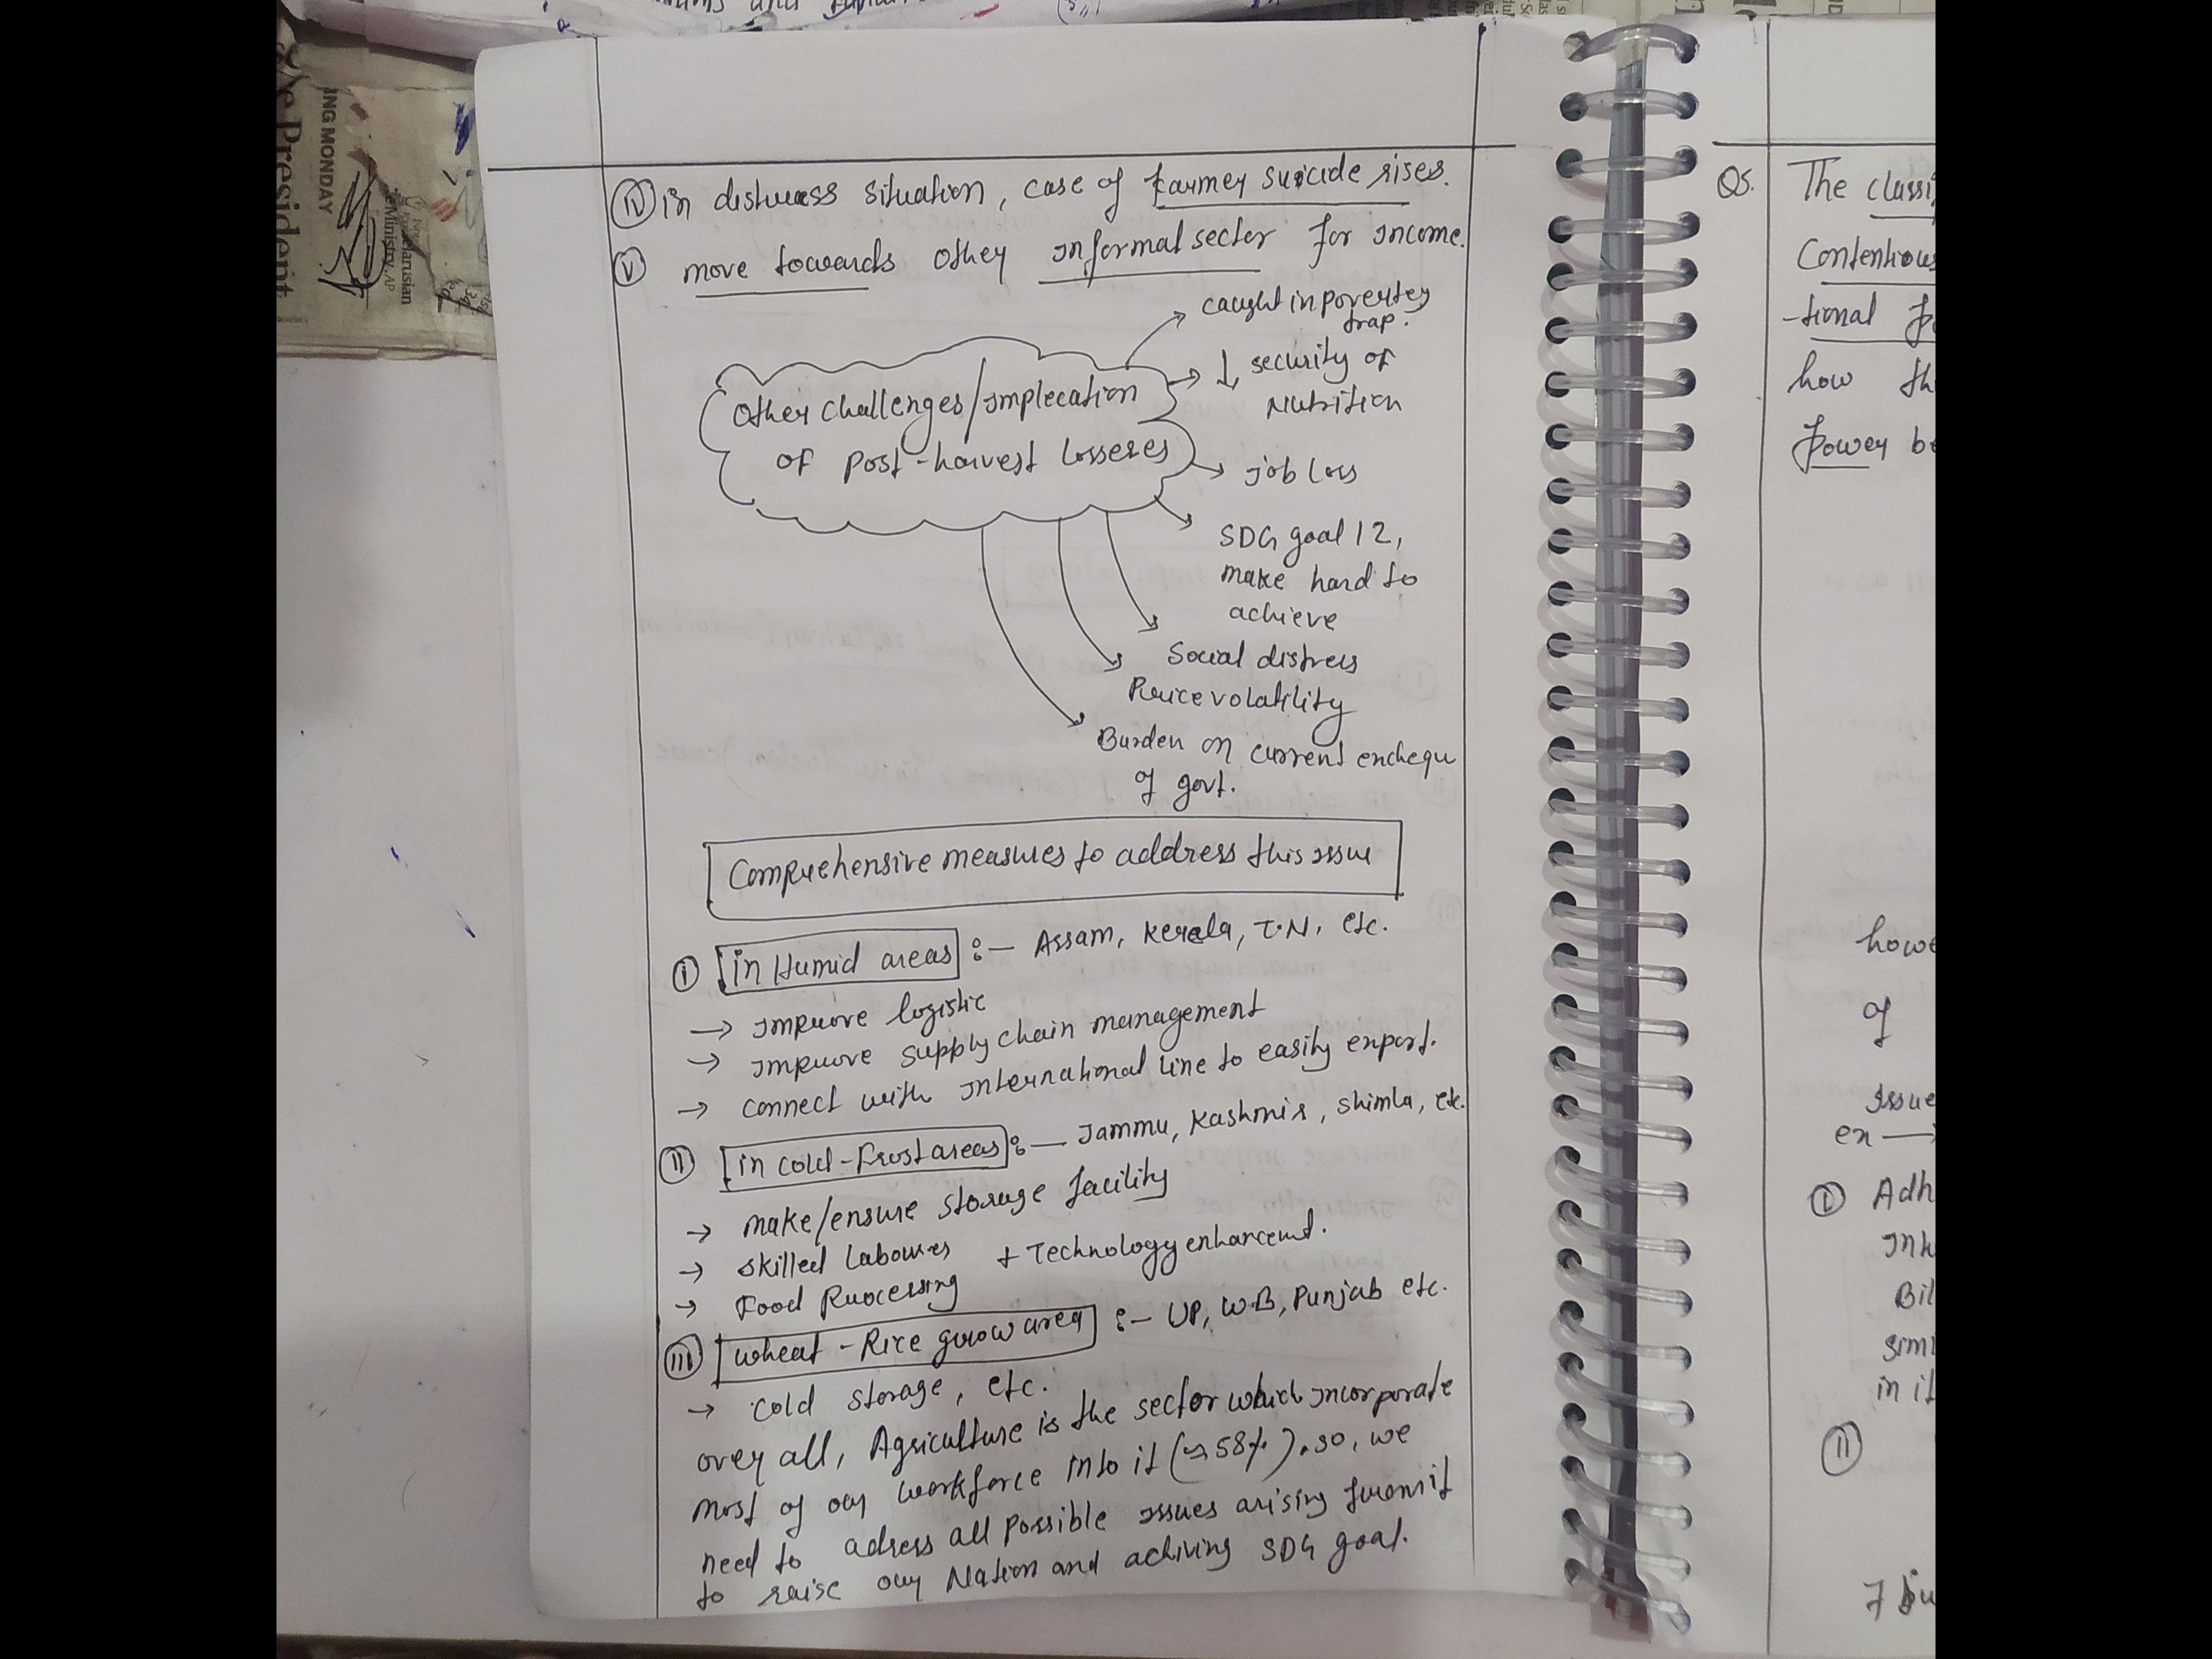 The President
ING MONDAY
elarusian
eMinistry. AP
(iv) in distress situation, case of farmer suicide rises.
(v) move towards other informal sector for income.
caught in poverty
trap.
↓ security of
Nutrition
Other challenges/implecation
of post-harvest losseres
Job loss
SDG goal 12,
make hard to
achieve
Social distress
Price volatility
Burden on current enchequ
of govt.
Comprehensive measures to address this issue
(i) in Humid areas :- Assam, Kerela, T.N. etc.
→ improve logistic
→ improve supply chain management
→ connect with international line to easily export.
(ii) in cold-Frost areas :- Jammu, Kashmir, Shimla, etc.
→ make/ensure storage facility
→ skilled Labours + Technology enhancemt.
→ Food Processing
(iii) wheat-Rice grow area :- UP, W.B, Punjab etc.
→ cold storage, etc.
over all, Agriculture is the sector which incorporate
most of our workforce into it (~58%). so, we
need to adress all possible issues arising from it
to raise our Nation and achiving SDG goal.
Q5. The classi
Contentious
-tional
how th
power be
howe
of
issue
ex →
(i) Adh
Bil
simi
in it
(ii)